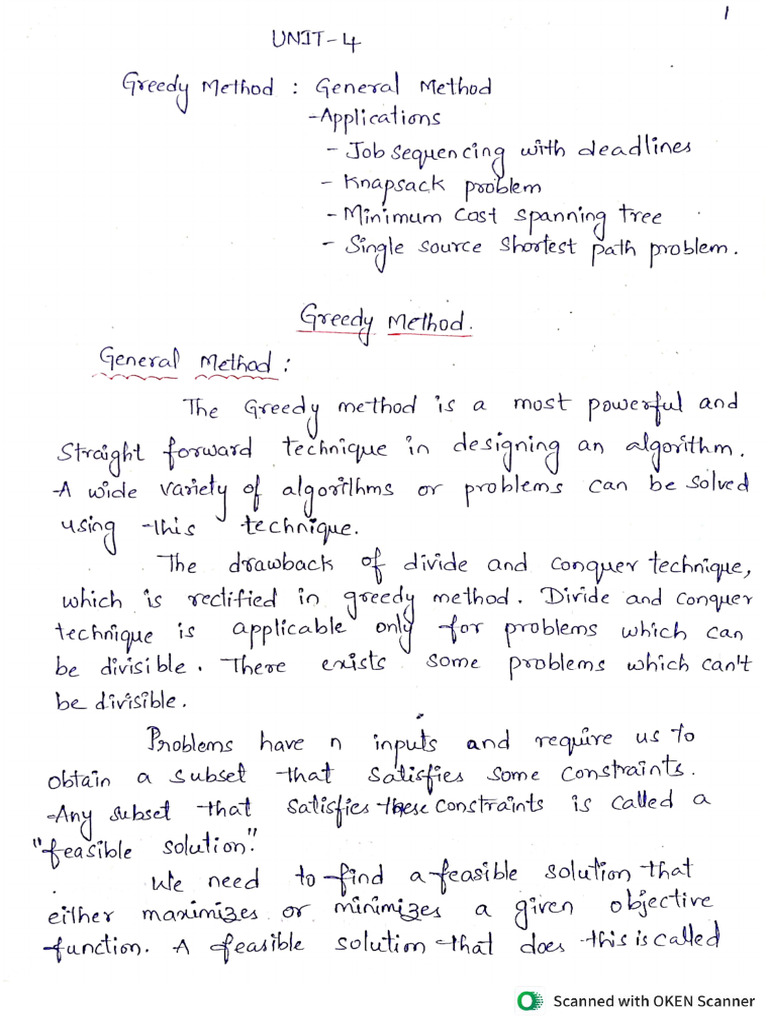 1
UNIT-4
Greedy Method : General Method
-Applications
- Job sequencing with deadlines
- Knapsack problem
- Minimum cost spanning tree
- Single source shortest path problem.
Greedy Method.
General Method :
The Greedy method is a most powerful and
straight forward technique in designing an algorithm.
A wide variety of algorithms or problems can be solved
using this technique.
The drawback of divide and conquer technique,
which is rectified in greedy method. Divide and conquer
technique is applicable only for problems which can
be divisible. There exists some problems which can't
be divisible.
Problems have n inputs and require us to
obtain a subset that satisfies some constraints.
Any subset that satisfies these constraints is called a
"feasible solution."
We need to find a feasible solution that
either maximizes or minimizes a given objective
function. A feasible solution that does this is called
Scanned with OKEN Scanner